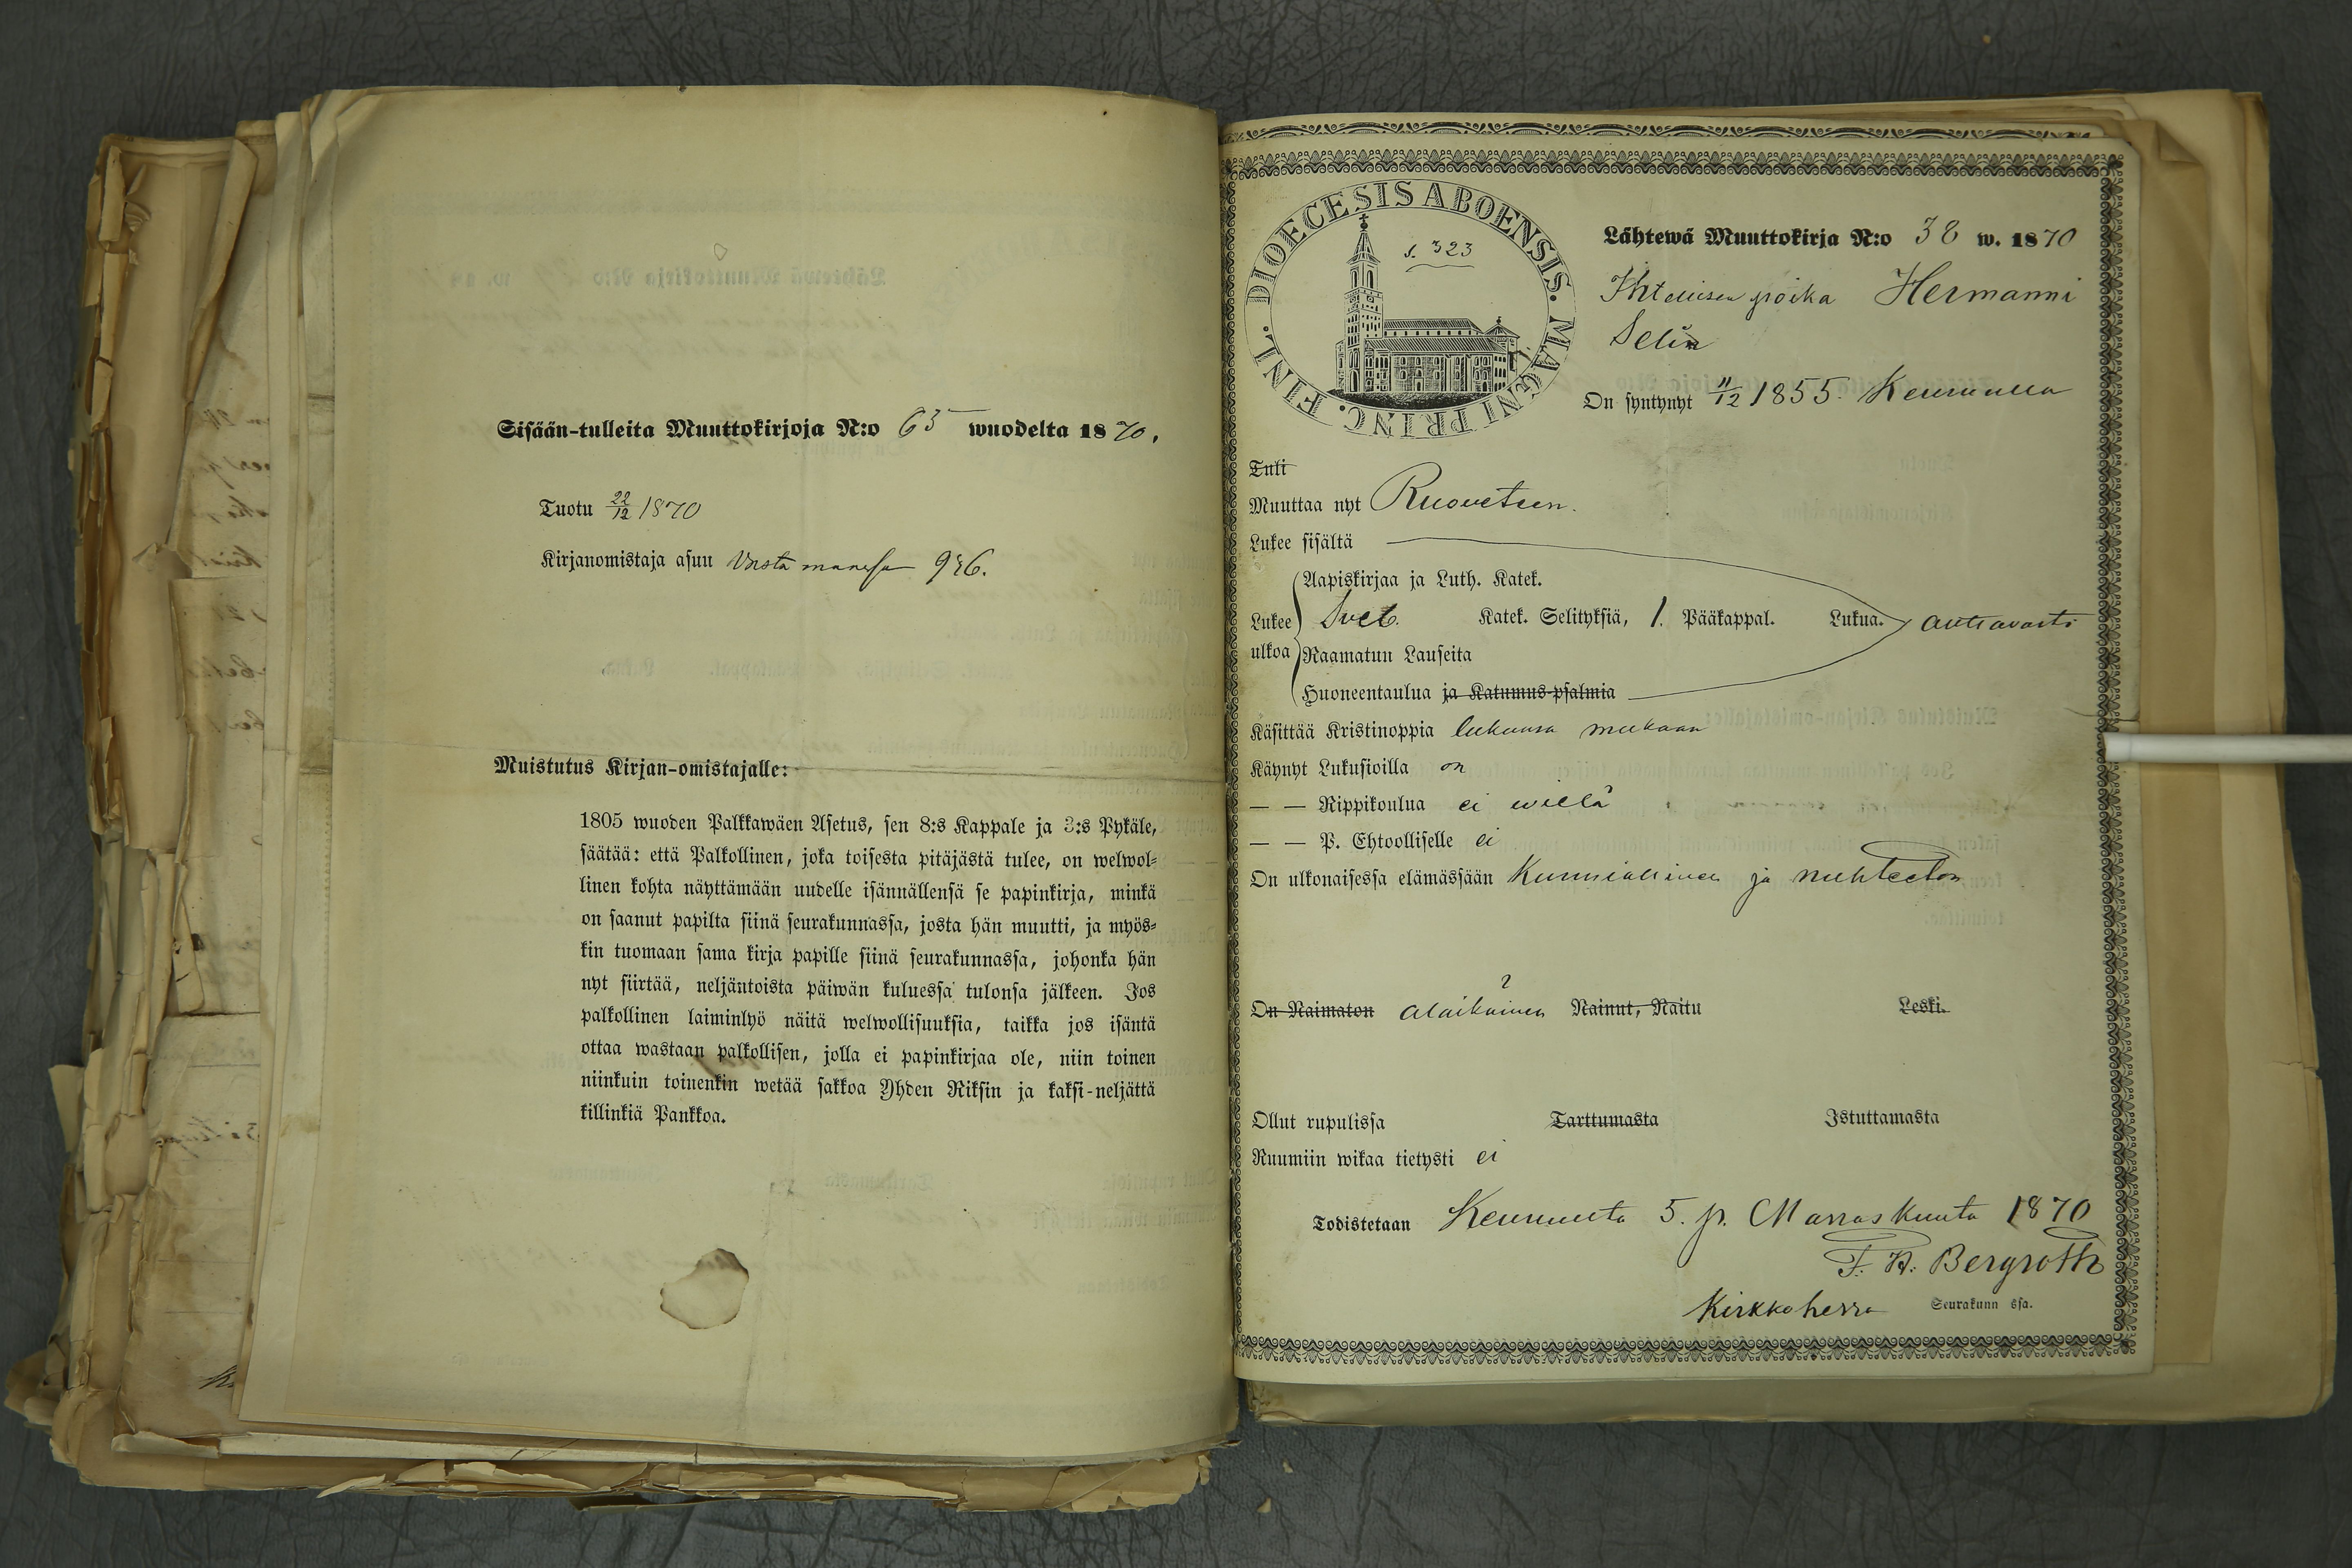 Sisään-tulleita Muuttokirjoja N:o 65 wuodelta 1870.
Tuotu 22/12 1870
Kirjanomistaja asuu 936.
Muistutus Kirjan-omistajalle:
1805 wuoden Palkkawäen Asetus, sen 8:s Kappale ja 3:s Pykäle,
säätää: että Palkollinen, joka toisesta pitäjästä tulee, on welwol-
linen kohta näyttämään uudelle isännällensä se papinkirja, minkä
on saanut papilta siinä seurakunnassa, josta hän muutti, ja myös-
kin tuomaan sama kirja papille siinä seurakunnassa, johonka hän
nyt siirtää, neljäntoista päiwän kuluessa tulonsa jälkeen. Jos
palkollinen laiminlyö näitä welwollisuuksia, taikka jos isäntä
ottaa wastaan palkollisen, jolla ei papinkirjaa ole, niin toinen
niinkuin toinenkin wetää sakkoa Yhden Riksin ja kaksi-neljättä
killinkiä Pankkoa.
DIOECESIS ABOENSIS. MAGNI PRINC. FINL.
s. 323
Lähtewä Muuttokirja N:o 38 w. 1870
Ihtellisen poika Hermanni
Selin
On syntynyt 11/12 1855. Keuruulla
Tuli
Muuttaa nyt Ruovetseen.
Lukee sisältä
Aapiskirjaa ja Luth. Katek.
Lukee Sveb. Katek. Selityksiä, 1. Pääkappal. Lukua. auttavasti
ulkoa Raamatun Lauseita
Huoneentaulua ja Katumus-psalmia
Käsittää Kristinoppia lukunsa mukaan
Käynyt Lukusioilla on
— — Rippikoulua ei wielä
— — P. Ehtoolliselle ei
On ulkonaisessa elämässään Kunniallinen ja nuhteeton
On Naimaton alaikäinen Nainut, Naitu Leski.
Ollut rupulissa Tarttumasta Istuttamasta
Ruumiin wikaa tietysti ei
Todistetaan Keuruulta 5. p. Marraskuuta 1870
F. H. Bergroth
Kirkkoherra Seurakunn ssa.